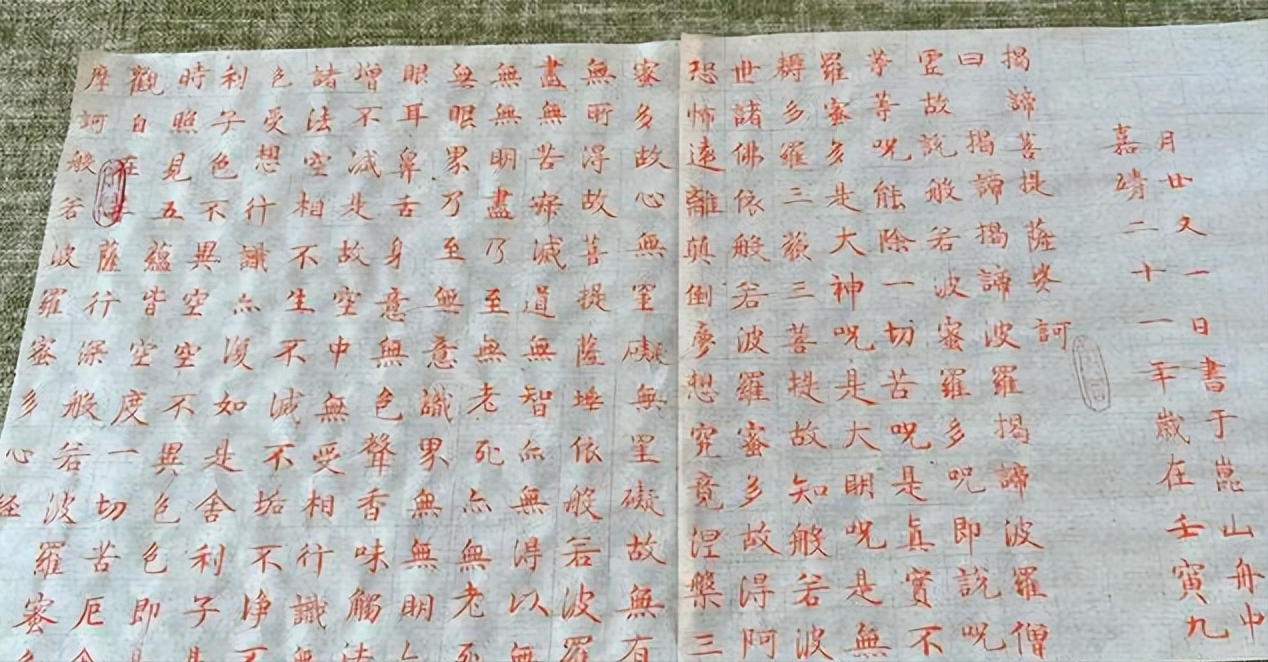 摩訶般若波羅蜜多心経
觀自在薩行深般若波羅蜜多
時照見五蘊皆空度一切苦厄舍
利子色不異空空不異色色即是
色受想行識亦復如是舍利子是
諸法空相不生不滅不垢不淨不
增不減是故空中無受相行識無
眼耳鼻舌身意無色聲香味觸法
無眼界乃至無意識界無無明亦
無無明盡乃至無老死亦無老死
盡無苦滅道無智亦無得以無
無所得故菩提薩埵依般若波羅
蜜多故心無罣礙無罣礙故無有
恐怖遠離顛倒夢想究竟涅槃三
世諸佛依般若波羅蜜多故得阿
耨多羅三藐三菩提故知般若波
羅蜜多是大神呪是大明呪是無
等等呪能除一切苦呪是真實不
虛故說般若波蜜羅多呪即說呪
曰揭諦揭諦波羅揭諦波羅僧
揭諦菩提薩婆訶
嘉靖二十一年歲在壬寅九
月廿又一日書于崑山舟中